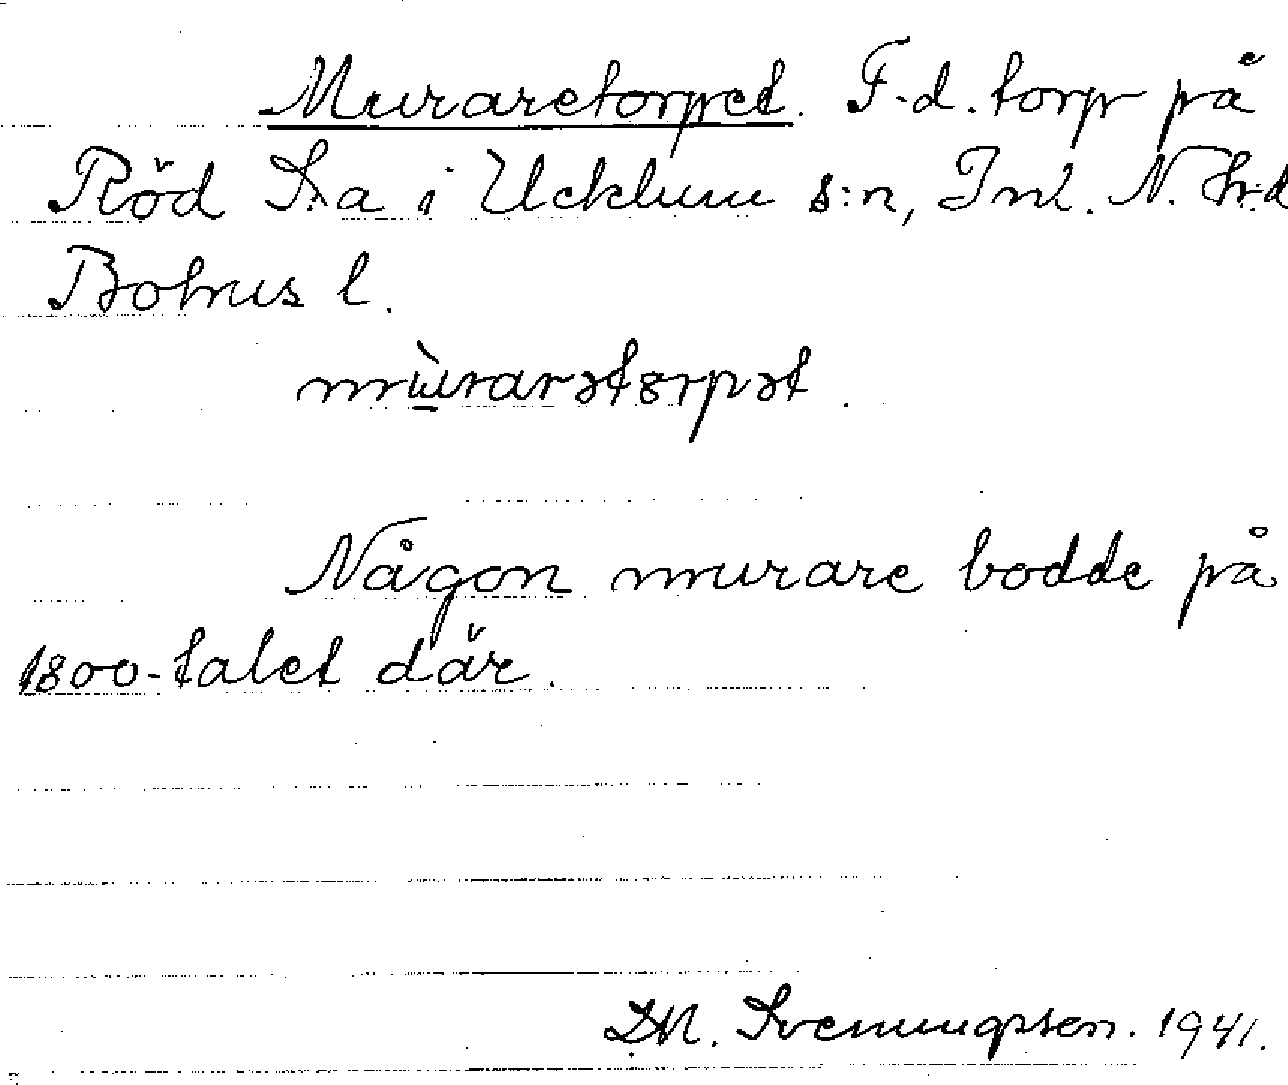 Muraretorpet. F.d. torp på
Röd S:a i Ucklum s:n, Inl. N. hd
Bohus l.
mu̱̇̀rarətɵrpət.
Någon murare bodde på
1800-talet där.
Svenungsson. 1941.